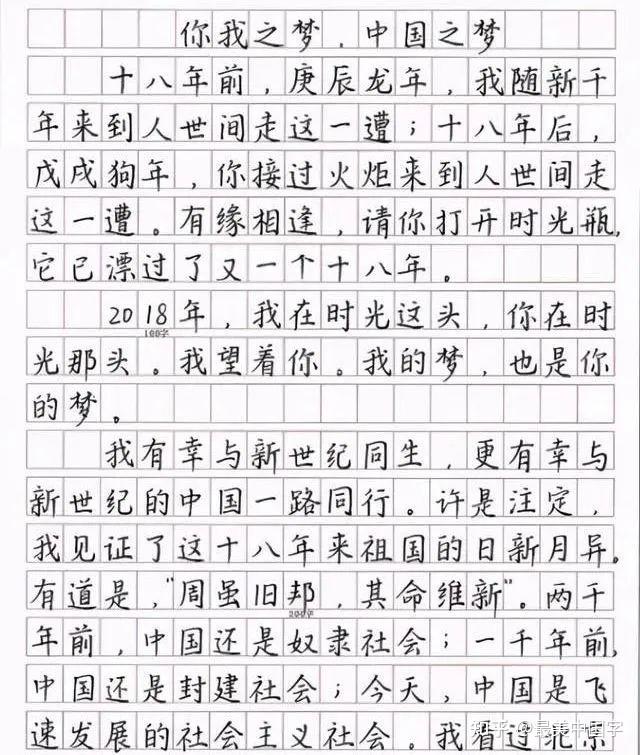 你我之梦，中国之梦
十八年前，庚辰龙年，我随新千
年来到人世间走这一遭；十八年后，
戊戌狗年，你接过火炬来到人世间走
这一遭。有缘相逢，请你打开时光瓶，
它已漂过了又一个十八年。
2018年，我在时光这头，你在时
100字
光那头。我望着你。我的梦，也是你
的梦。
我有幸与新世纪同生，更有幸与
新世纪的中国一路同行。许是注定，
我见证了这十八年来祖国的日新月异。
有道是，“周虽旧邦，其命维新”。两千
200字
年前，中国还是奴隶社会；一千年前，
中国还是封建社会；今天，中国是飞
速发展的社会主义社会。我看过
知乎 @最美中国字